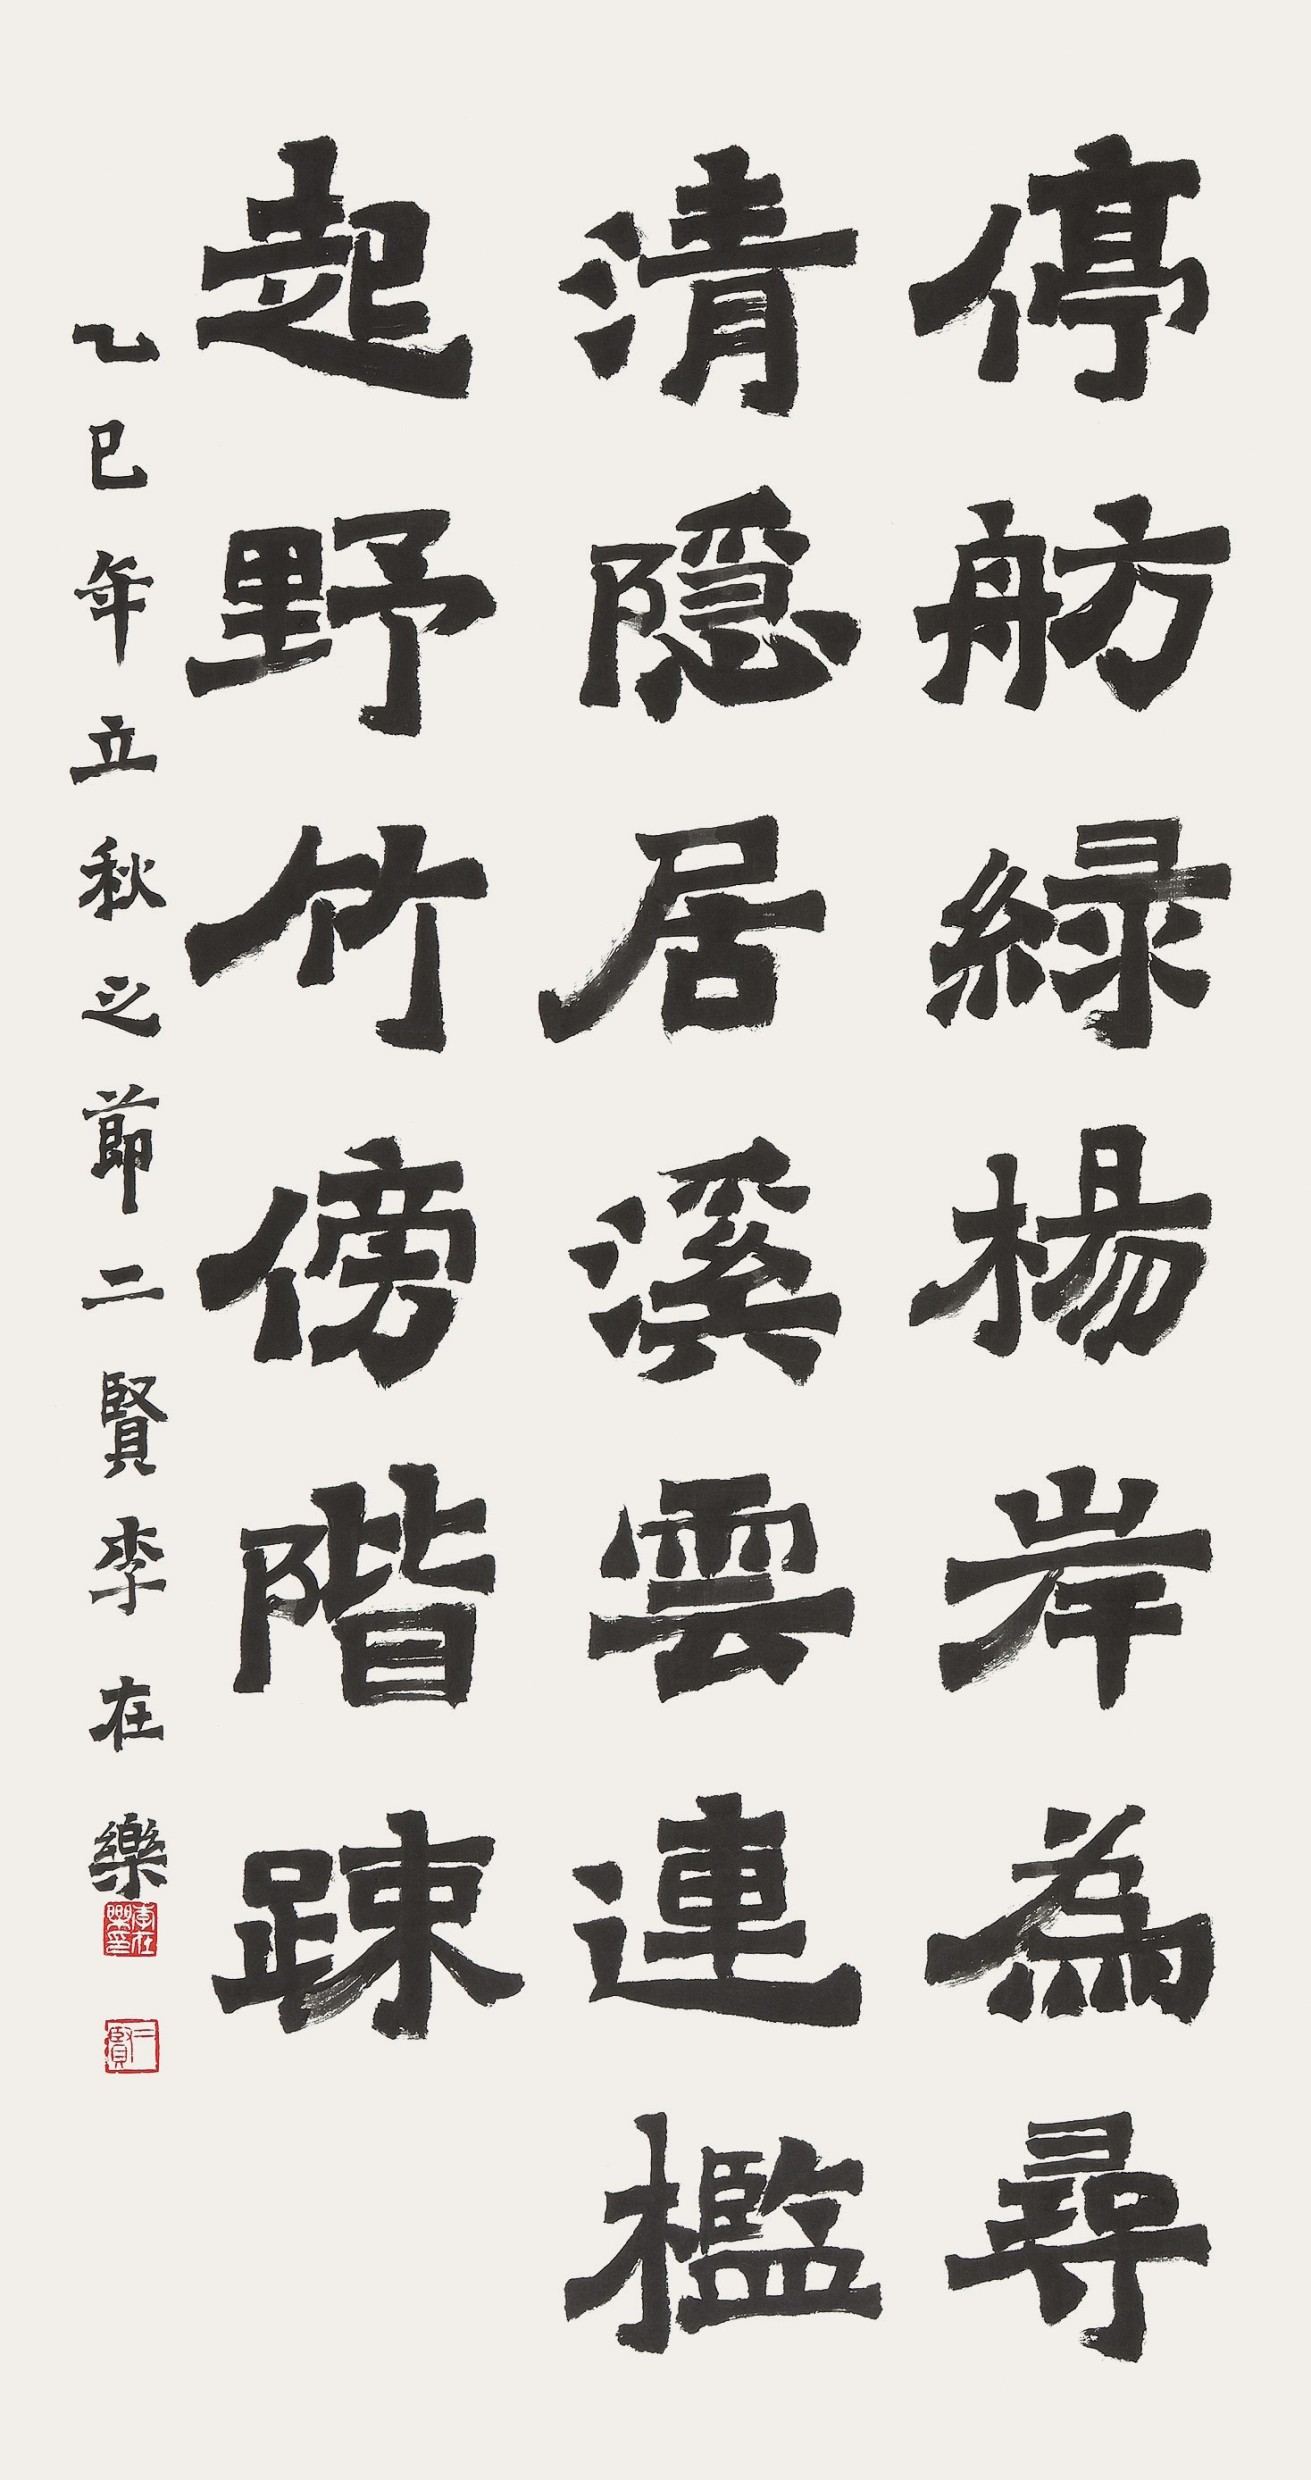 停舫緑楊岸為尋
清隱居溪雲連檻
起野竹傍階踈
乙巳年立秋之節二賢李在樂
李在樂印
二賢